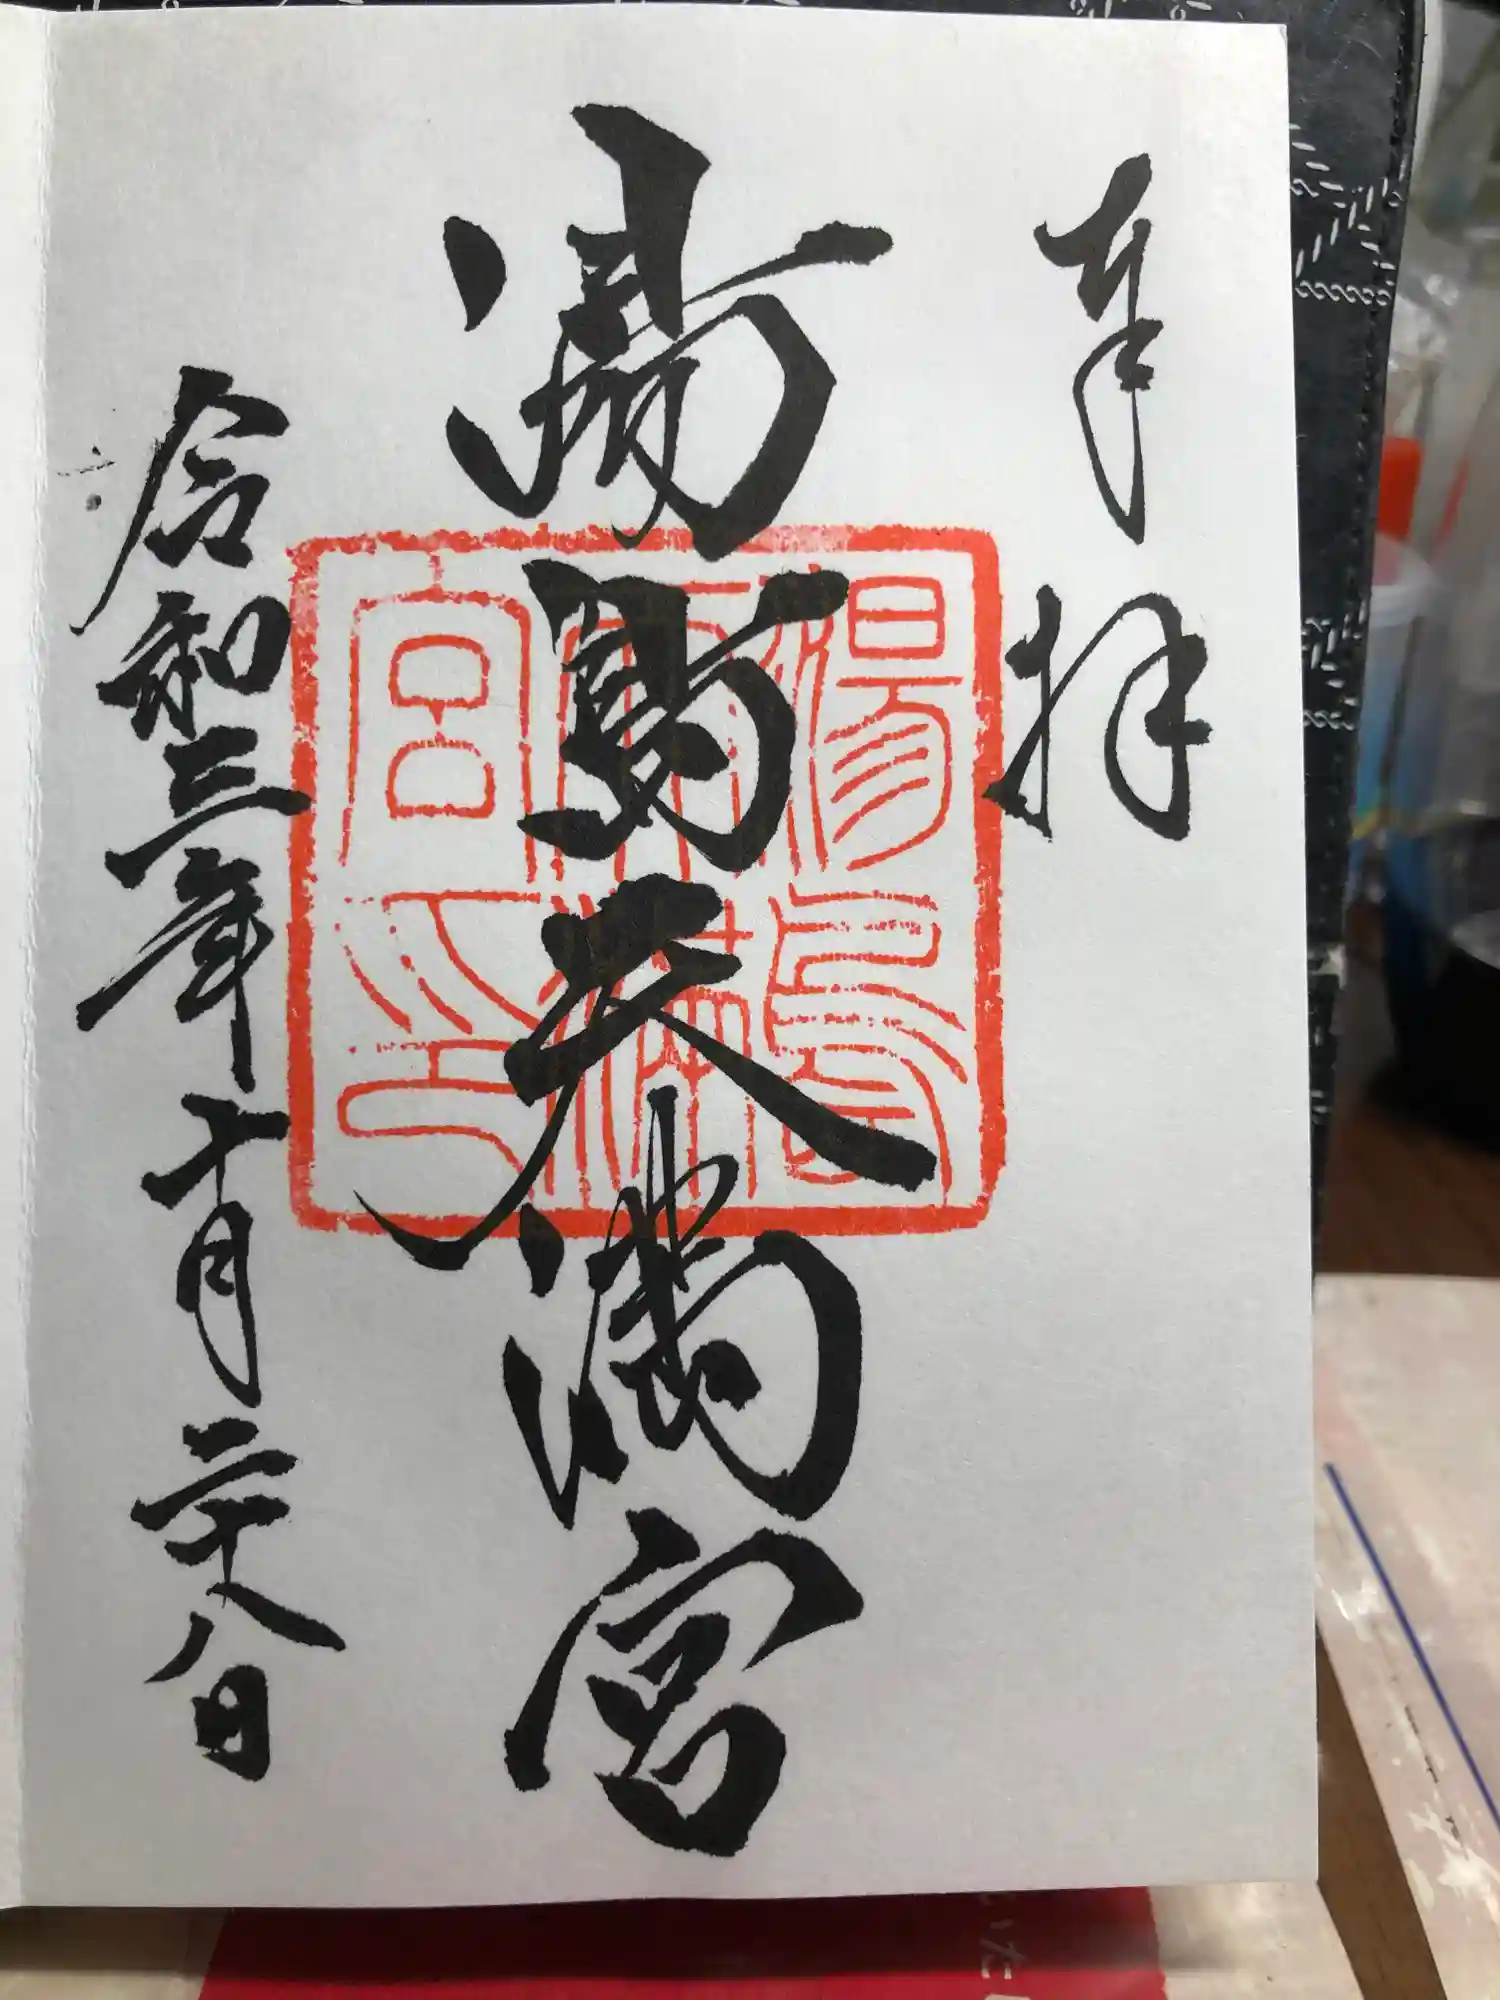 奉拝
湯島天満宮
湯島
天満
宮印
令和三年十月二十八日
いた